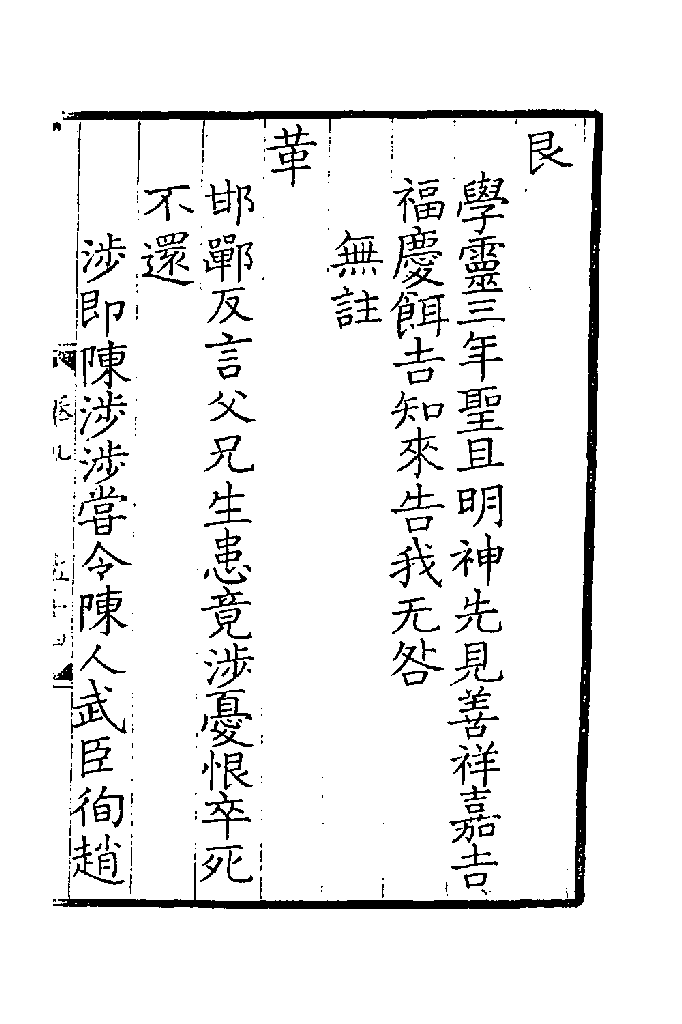 艮
學靈三年聖且明神先見善祥嘉吉
福慶餌吉知來告我无咎
無註
革
邯鄲反言父兄生患竟涉憂恨卒死
不還
涉即陳涉涉嘗令陳人武臣徇趙